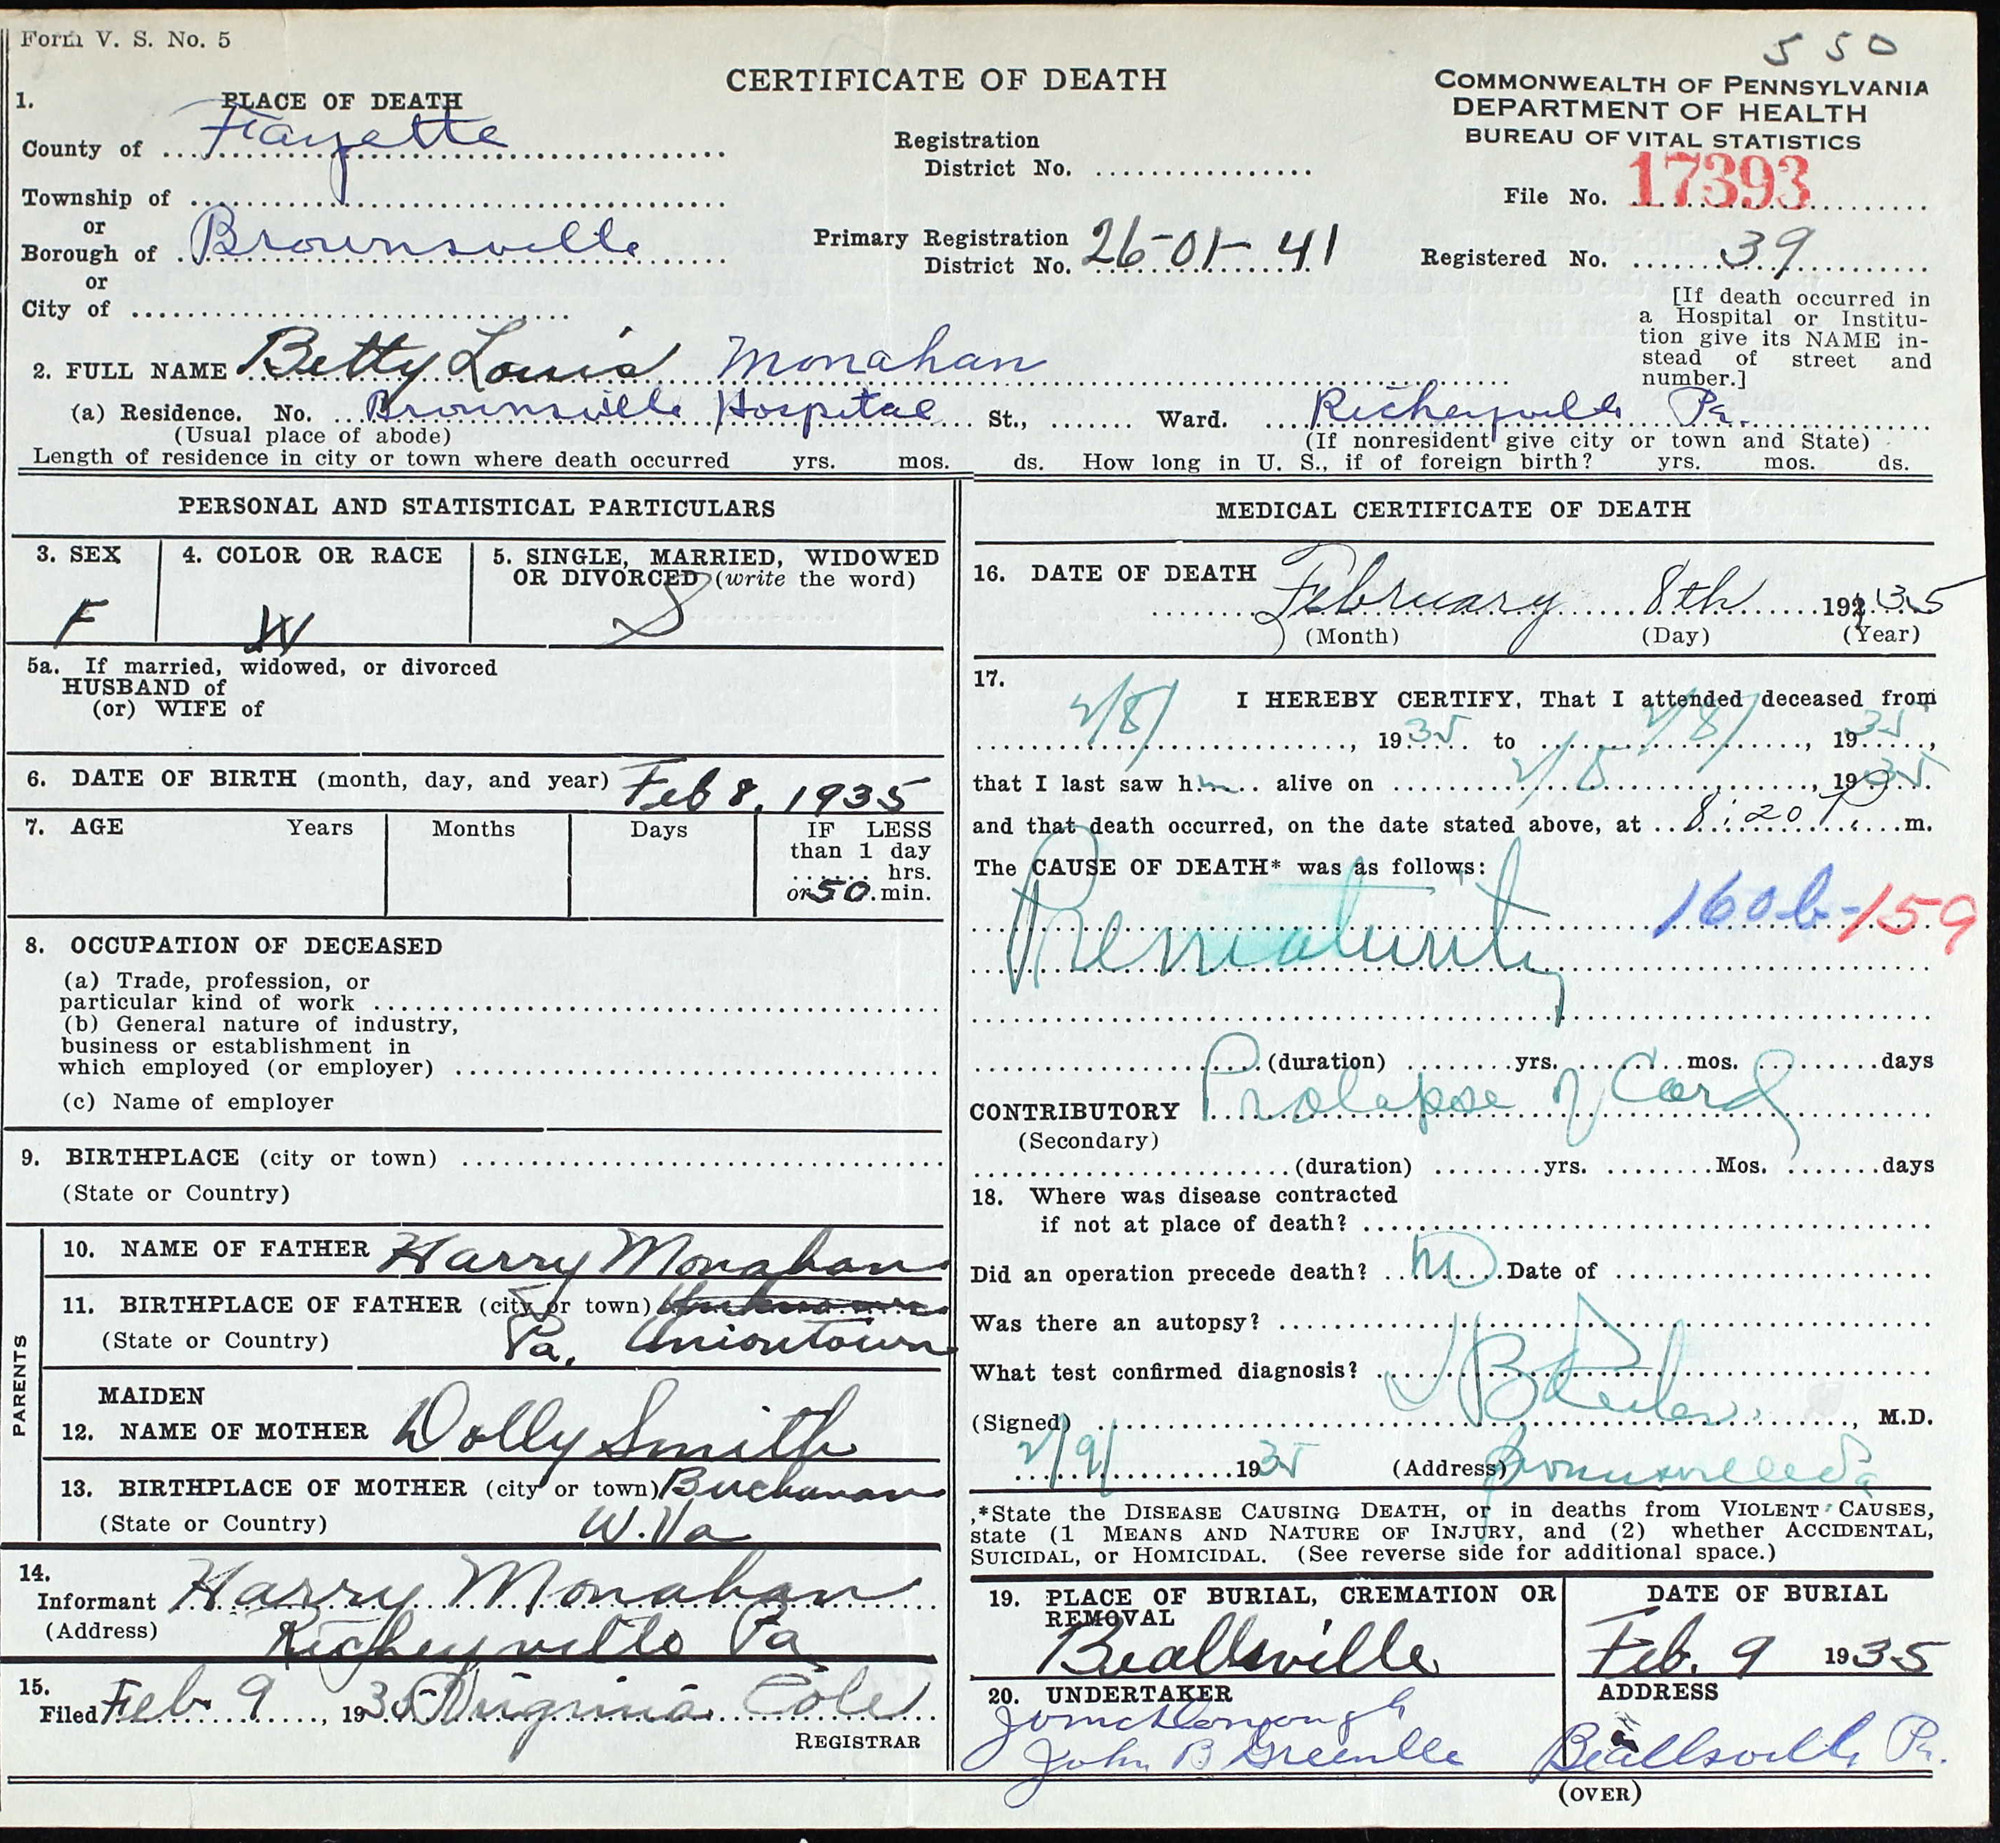 Form V. S. No. 5
550
CERTIFICATE OF DEATH
COMMONWEALTH OF PENNSYLVANIA
DEPARTMENT OF HEALTH
BUREAU OF VITAL STATISTICS
1. PLACE OF DEATH
County of Fayette
Registration District No.
File No. 17393
Township of
or
Borough of Brownsville
Primary Registration District No. 26-01-41
Registered No. 39
or
City of
[If death occurred in
a Hospital or Institu-
tion give its NAME in-
stead of street and
number.]
2. FULL NAME Betty Louis Monahan
(a) Residence. No. Brownsville Hospital St., Ward. Richeyville Pa.
(Usual place of abode) (If nonresident give city or town and State)
Length of residence in city or town where death occurred yrs. mos. ds. How long in U. S., if of foreign birth? yrs. mos. ds.
PERSONAL AND STATISTICAL PARTICULARS
3. SEX
F
4. COLOR OR RACE
W
5. SINGLE, MARRIED, WIDOWED
OR DIVORCED (write the word)
S
5a. If married, widowed, or divorced
HUSBAND of
(or) WIFE of
6. DATE OF BIRTH (month, day, and year) Feb 8, 1935
7. AGE Years Months Days
IF LESS
than 1 day
hrs.
or 50 min.
8. OCCUPATION OF DECEASED
(a) Trade, profession, or
particular kind of work
(b) General nature of industry,
business or establishment in
which employed (or employer)
(c) Name of employer
9. BIRTHPLACE (city or town)
(State or Country)
PARENTS
10. NAME OF FATHER Harry Monahan
11. BIRTHPLACE OF FATHER (city or town) Unknown
(State or Country) Pa. Uniontown
MAIDEN
12. NAME OF MOTHER Dolly Smith
13. BIRTHPLACE OF MOTHER (city or town) Buchanan
(State or Country) W. Va
14.
Informant Harry Monahan
(Address) Richeyville Pa
15.
Filed Feb 9, 1935 Cole
REGISTRAR
MEDICAL CERTIFICATE OF DEATH
16. DATE OF DEATH
February 8th 192 35
(Month) (Day) (Year)
17. I HEREBY CERTIFY, That I attended deceased from
2/8/, 1935 to 2/8/, 1935,
that I last saw h alive on 2/8, 1935
and that death occurred, on the date stated above, at 8:20 P.m.
The CAUSE OF DEATH* was as follows:
160b-159
Prematurity
(duration) yrs. mos. days
CONTRIBUTORY Prolapse of Cord
(Secondary)
(duration) yrs. Mos. days
18. Where was disease contracted
if not at place of death?
Did an operation precede death? no Date of
Was there an autopsy?
What test confirmed diagnosis?
(Signed) , M.D.
2/9/ 1935 (Address) Brownsville Pa
*State the DISEASE CAUSING DEATH, or in deaths from VIOLENT CAUSES,
state (1 MEANS AND NATURE OF INJURY, and (2) whether ACCIDENTAL,
SUICIDAL, or HOMICIDAL. (See reverse side for additional space.)
19. PLACE OF BURIAL, CREMATION OR
REMOVAL
Beallsville
DATE OF BURIAL
Feb. 9 1935
20. UNDERTAKER
John B Greenlee
ADDRESS
Beallsville Pa.
(OVER)